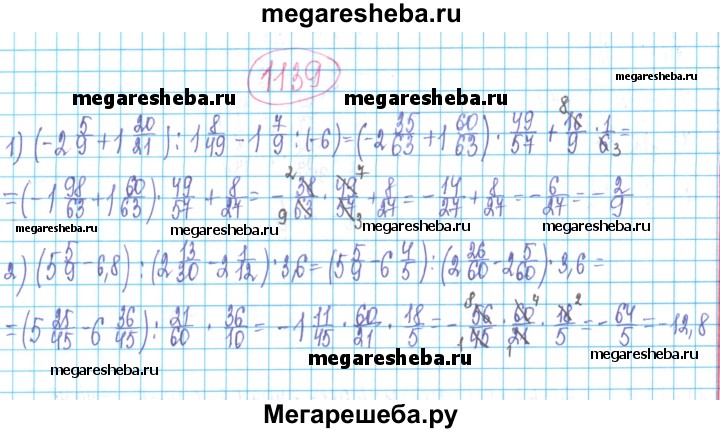 megaresheba.ru
1139
megaresheba.ru megaresheba.ru megaresheba.ru
1) (-2 5/9 + 1 20/21) : 1 8/49 - 1 7/9 : (-6) = (-2 35/63 + 1 60/63) · 49/57 + 16/9 · 1/6 =
8 3
megaresheba.ru megaresheba.ru
= (-1 98/63 + 1 60/63) · 49/57 + 8/27 = - 38/63 · 49/57 + 8/27 = - 14/27 + 8/27 = - 6/27 = - 2/9
2 7 9 3
megaresheba.ru megaresheba.ru megaresheba.ru
2) (5 5/9 - 6,8) : (2 13/30 - 2 1/12) · 3,6 = (5 5/9 - 6 4/5) : (2 26/60 - 2 5/60) · 3,6 =
= (5 25/45 - 6 36/45) : 21/60 · 36/10 = - 1 11/45 · 60/21 · 18/5 = - 56/45 · 60/21 · 18/5 = - 64/5 = - 12,8
8 4 2 1 1
megaresheba.ru megaresheba.ru megaresheba.ru
Мегарешеба.ру